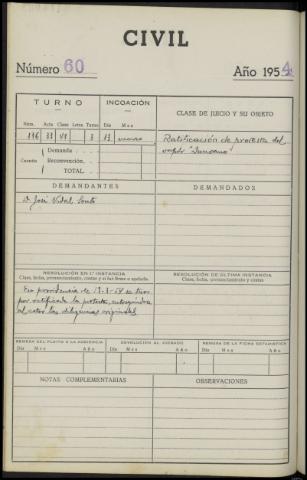 CIVIL
Número 60 Año 1954
TURNO INCOACIÓN CLASE DE JUICIO Y SU OBJETO
Núm. Acta Clase Letra Turno Día Mes
3 13 enero Ratificación de protesta del
vapor
Cuantía Demanda
Reconvención
TOTAL
DEMANDANTES DEMANDADOS
D. José Vidal Souto
RESOLUCIÓN EN 1.ª INSTANCIA RESOLUCIÓN DE ÚLTIMA INSTANCIA
Clase, fecha, pronunciamiento, costas y si fué firme o apelada. Clase, fecha, pronunciamiento y costas
En providencia de se tuvo
por ratificada la protesta, entregándose
al actor las diligencias originales
REMESA DEL PLEITO A LA AUDIENCIA DEVOLUCIÓN AL JUZGADO REMESA DE LA FICHA ESTADÍSTICA
Día Mes Año Día Mes Año Día Mes Año
NOTAS COMPLEMENTARIAS OBSERVACIONES